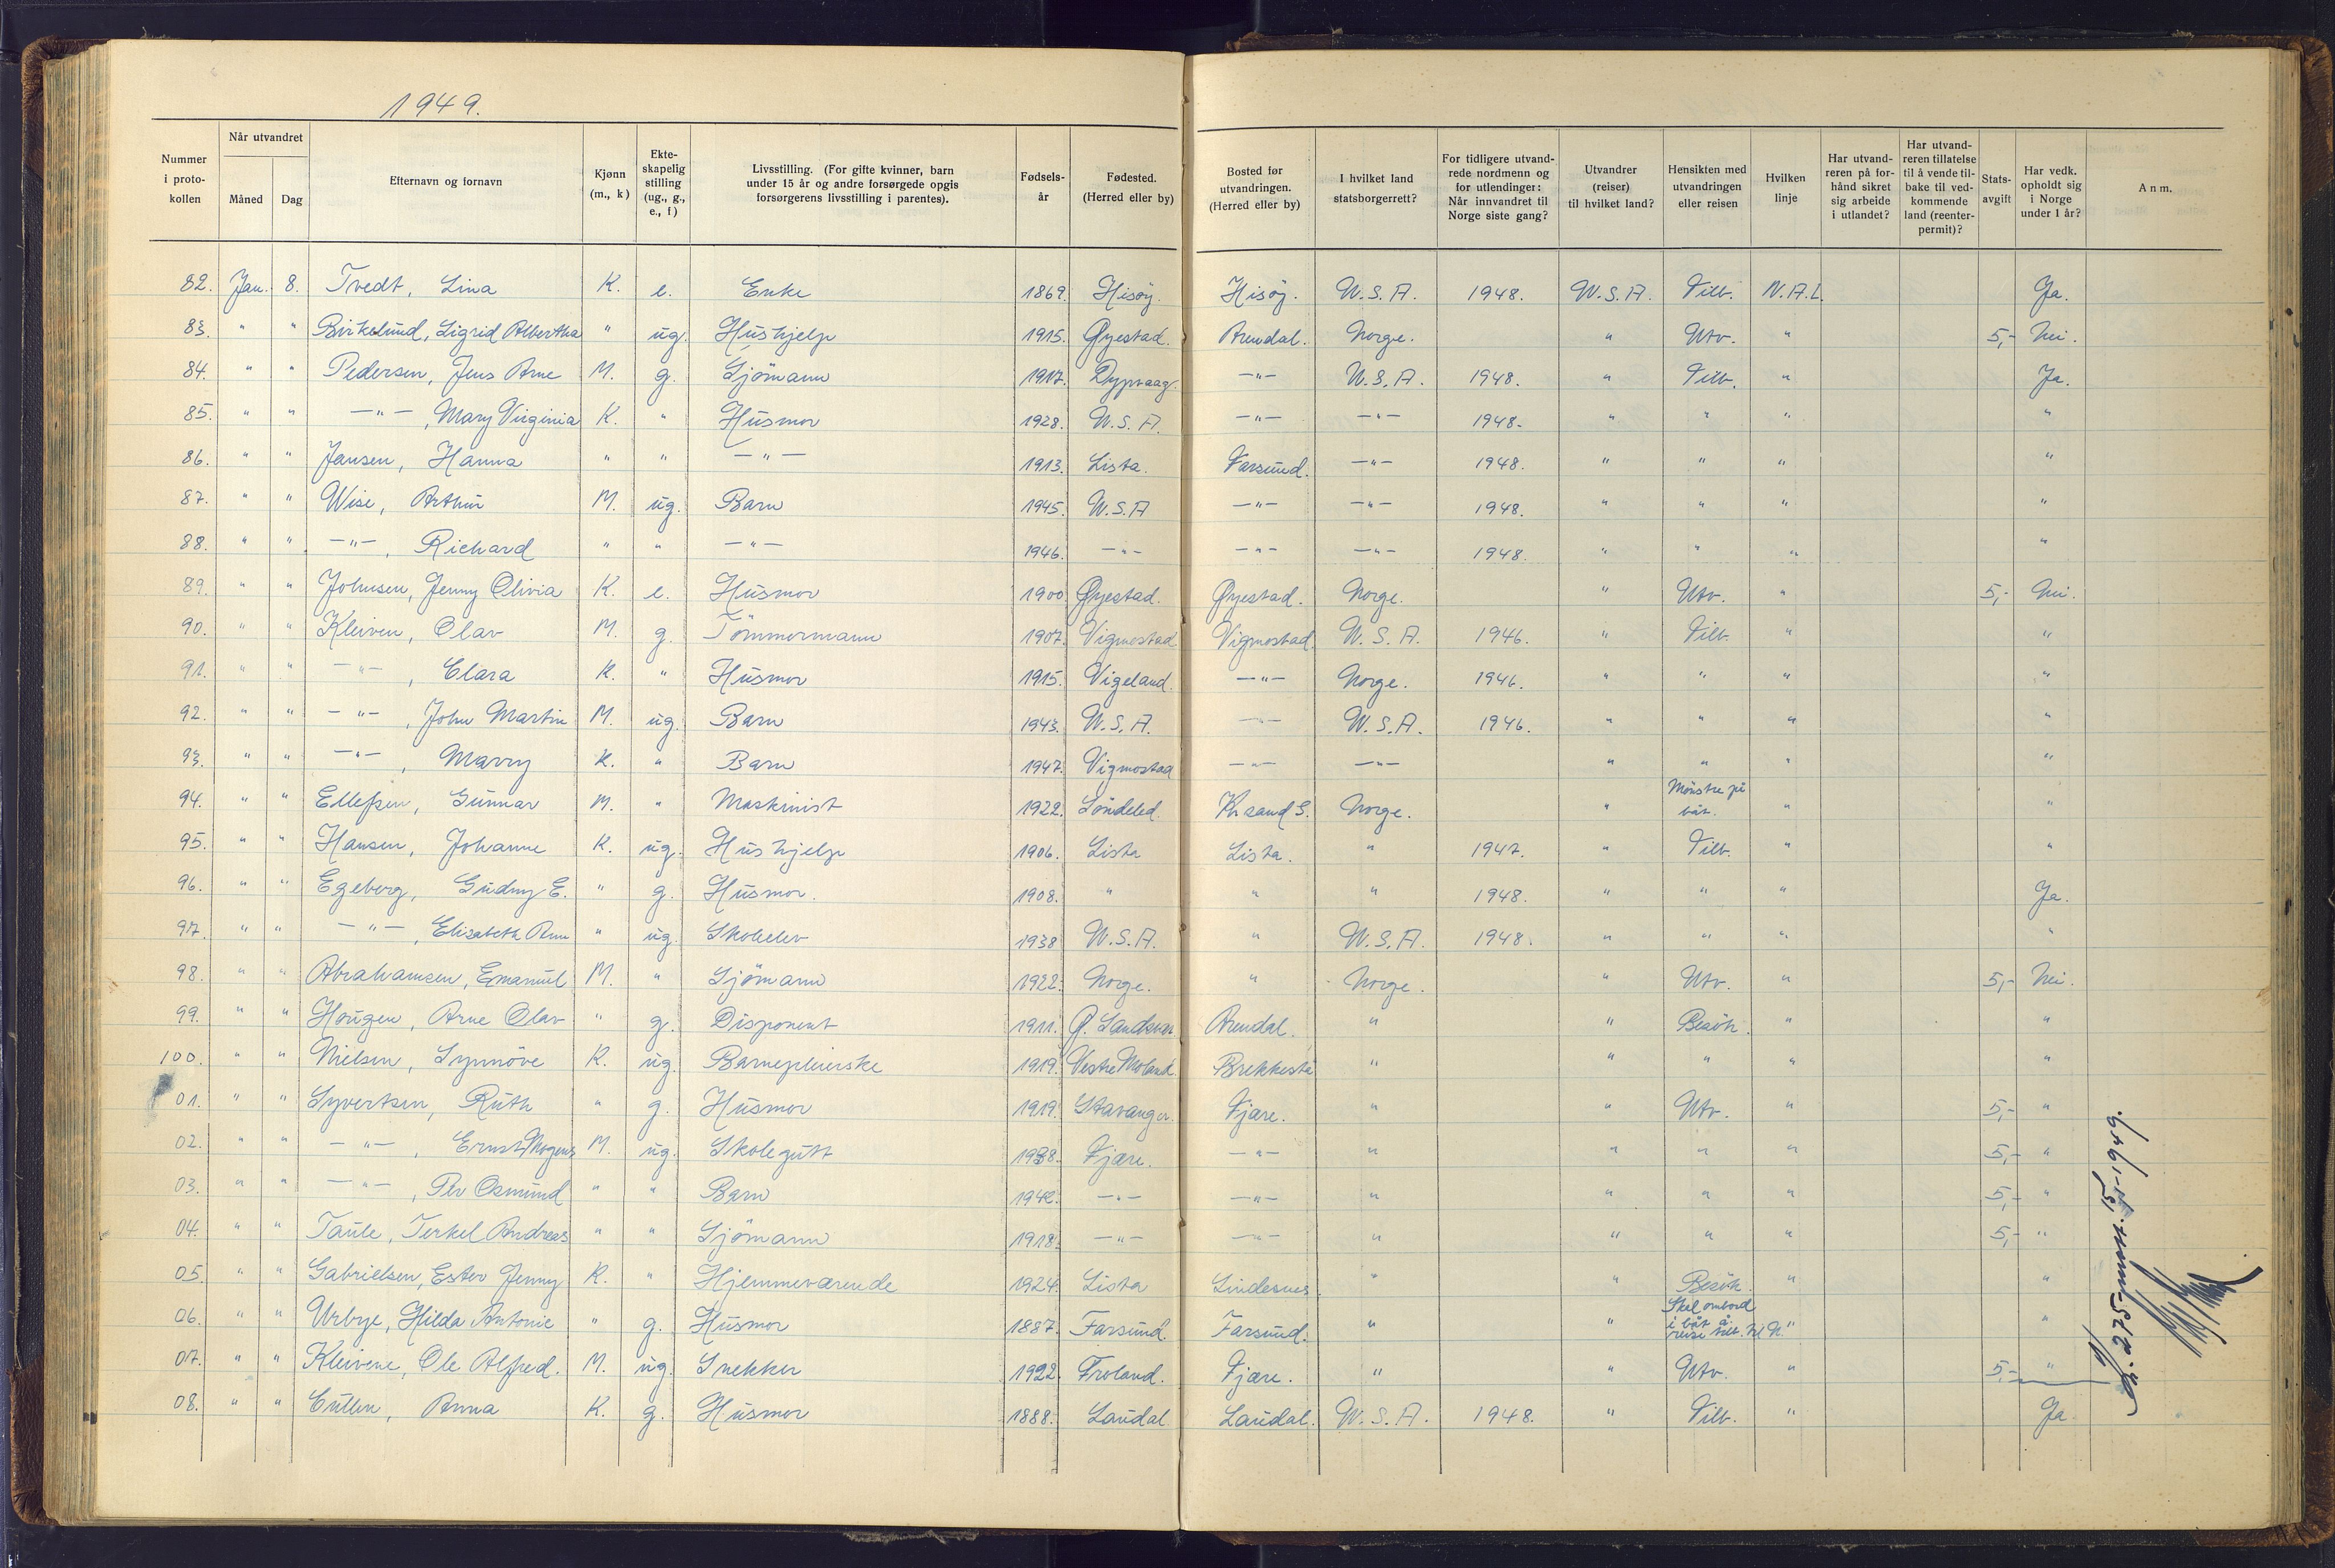 1949.
Nummer i proto-kollen | Når utvandret Måned | Dag | Efternavn og fornavn | Kjønn (m., k) | Ekte-skapelig stilling (ug., g., e., f) | Livsstilling. (For gifte kvinner, barn under 15 år og andre forsørgede opgis forsørgerens livsstilling i parentes). | Fødsels-år | Fødested. (Herred eller by) | Bosted før utvandringen. (Herred eller by) | I hvilket land statsborgerrett? | For tidligere utvand-rede nordmenn og for utlendinger: Når innvandret til Norge siste gang? | Utvandrer (reiser) til hvilket land? | Hensikten med utvandringen eller reisen | Hvilken linje | Har utvand-reren på for-hånd sikret sig arbeide i utlandet? | Har utvand-reren tillatelse til å vende til-bake til ved-kommende land (reenter-permit)? | Stats-avgift | Har vedk. opholdt sig i Norge under 1 år? | Anm.
82. Jan. 8. Tvedt, Lina K. e. Enke 1869. Hisøy. Hisøy. U.S.A. 1948. U.S.A. Tilb. N.A.L. Ja.
83. " " Birkelund, Sigrid Albertha " ug. Hushjelp 1915. Øyestad. Arendal. Norge. " Utv. " 5,- Nei.
84. " " Pedersen, Jens Arne M. g. Sjömann 1917. Dypvaag. —"— U.S.A. 1948. " Tilb. " Ja.
85. " " —"—, Mary Virginia K. " Husmor 1928. U.S.A. —"— —"— 1948. " " " "
86. " " Jansen, Hanna " " —"— 1913. Lista. Farsund. —"— 1948. " " " "
87. " " Wise, Arthur M. ug. Barn 1945. U.S.A —"— —"— 1948. " " " "
88. " " —"—, Richard " " —"— 1946. —"— —"— —"— 1948. " " " "
89. " " Johnsen, Jenny Olivia K. e. Husmor 1900 Øyestad. Øyestad. Norge. " Utv. " 5,- Nei.
90. " " Kleiven, Olav M. g. Tömmermann 1907. Vigmostad Vigmostad. U.S.A. 1946. " Tilb. " "
91. " " —"—, Clara K. " Husmor 1915. Vigeland. —"— Norge. 1946. " " " "
92. " " —"—, John Martin M. ug. Barn 1943. U.S.A. —"— U.S.A. 1946. " " " "
93. " " —"—, Marry K. " Barn 1947. Vigmostad —"— —"— " " " "
94. " " Ellefsen, Gunnar M. " Maskinist 1922. Söndeled. Kr.sand S. Norge. " Mönstre på båt. " "
95. " " Hansen, Johanne K. ug. Hushjelp 1906. Lista Lista. " 1947. " Tilb. " "
96. " " Egeberg, Gudny E. " g. Husmor. 1908. " " " 1948. " " " Ja.
97. " " —"—, Elisabeth Ann " ug. Skoleelev 1938 U.S.A. " U.S.A. 1948. " " " "
98. " " Abrahamsen, Emanuel M. " Sjömann 1922. Norge. " Norge. " Utv. " 5,- Nei.
99. " " Hougen, Arne Olav " g. Disponent 1911. Arendal. " " Besök. " "
100. " " Nielsen, Synnöve K. ug. Barnepleierske 1919. Vestre Moland. Brekkestö " " " " "
01. " " Syvertsen, Ruth " g. Husmor 1919. Stavanger. Fjære. " " Utv. " 5,- "
02. " " —"—, Ernst Mogens M. ug. Skolegutt 1938. Fjære. —"— " " " " 5,- "
03. " " —"—, Per Osmund " " Barn 1942. —"— —"— " " " " 5,- "
04. " " Taule, Terkel Andreas " " Sjömann 1918. —"— —"— " " " " 5,- "
05. " " Gabrielsen, Ester Jenny K. " Hjemmeværende 1924. Lista Lindesnes. " " Besök. " "
06. " " Urbye, Hilda Antonie " g. Husmor 1887. Farsund. Farsund. " " Skal ombord i båt å reise tilb. til N. " "
07. " " Kleivene, Ole Alfred. M. ug. Snekker 1922 Froland. Fjære. " " Utv. " 5,- "
08. " " Cullen, Anna K. g. Husmor 1888. Laudal. Laudal. U.S.A. 1948. " Tilb. " Ja.